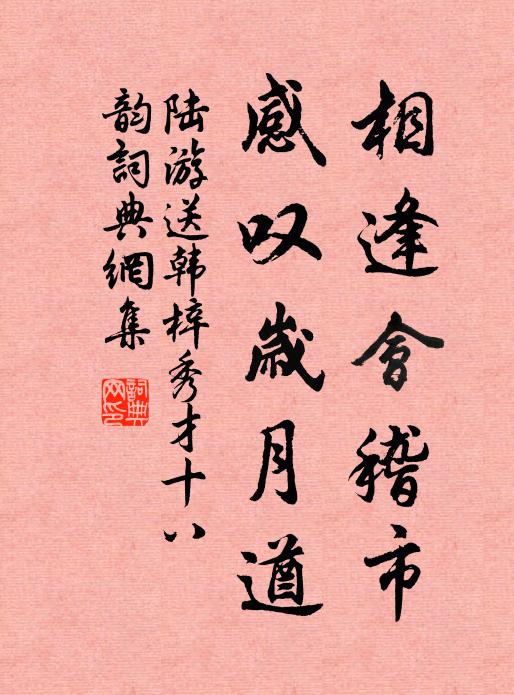 相逢會稽市
感叹歲月遒
陆游送韩梓秀才十八
韵詞典網集
詞典网印